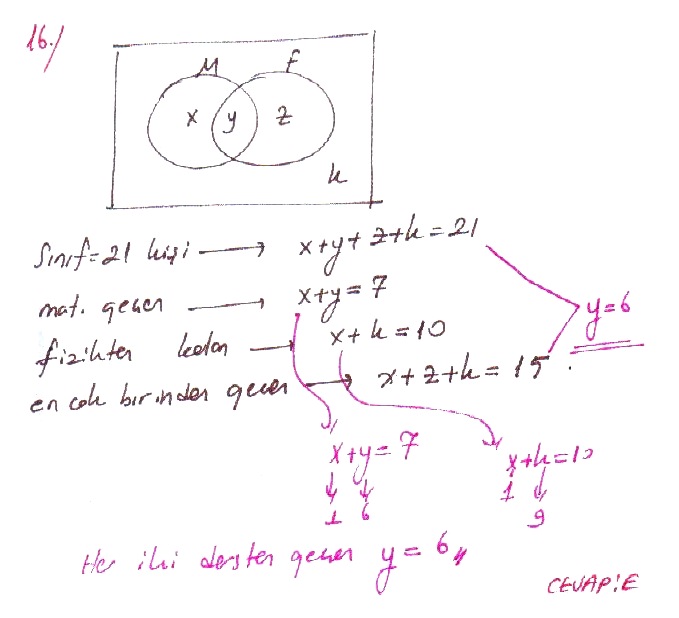 16./
M F
x y z
k
Sınıf=21 kişi → x+y+z+k=21
mat. geçen → x+y=7
y=6
fizikten kalan → x+k=10
en çok birinden geçen → x+z+k=15.
x+y=7 x+k=10
1 6 1 9
Her iki dersten geçen y=6,,
CEVAP:E